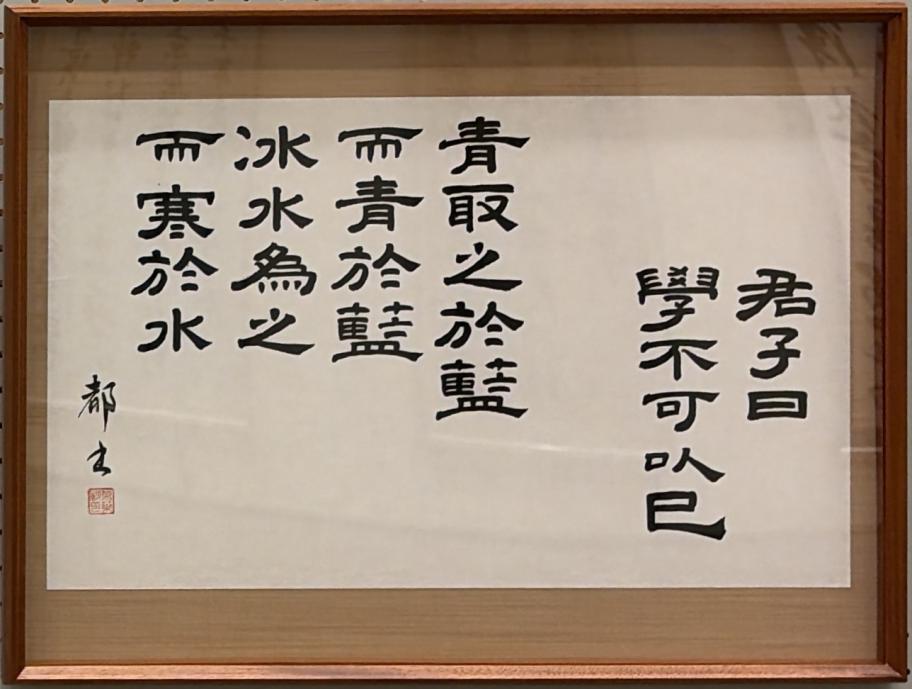 君子曰
學不可以已
青取之於藍
而青於藍
冰水為之
而寒於水
都士